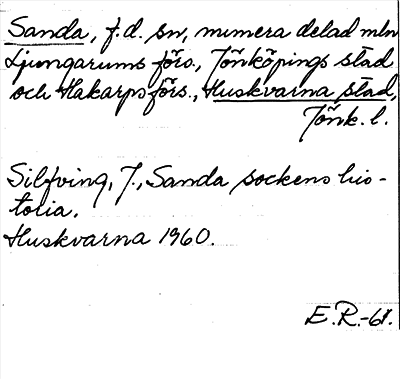 Sanda, f.d. sn, numera delad mln
Ljungarums förs., Jönköpings stad
och Hakarps förs., Huskvarna stad,
Jönk. l.
Silfving, J., Sanda sockens his-
toria.
Huskvarna 1960.
E.R.-61.